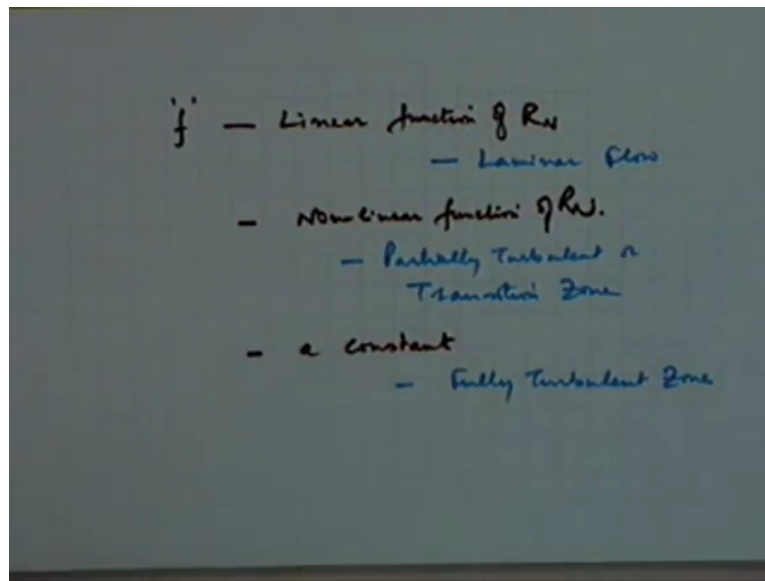 'f' — Linear function of RN
— Laminar Flow
- Non-linear function of RN.
— Partially Turbulent or
Transition Zone
- a constant
- Fully Turbulent Zone